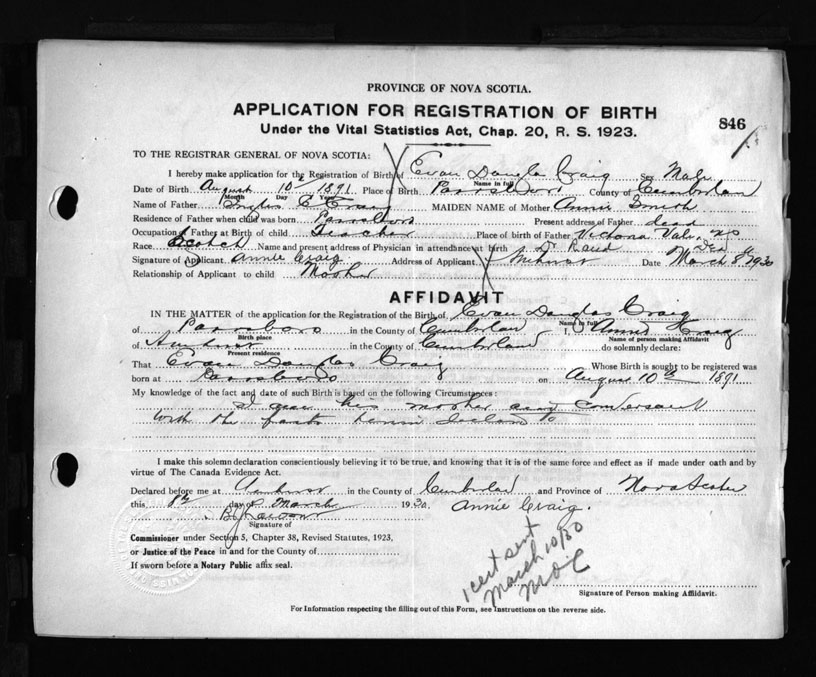 PROVINCE OF NOVA SCOTIA.
APPLICATION FOR REGISTRATION OF BIRTH
846
Under the Vital Statistics Act, Chap. 20, R. S. 1923.
TO THE REGISTRAR GENERAL OF NOVA SCOTIA:
I hereby make application for the Registration of Birth of Evan Douglas Craig Sex Male
Name in full
Date of Birth August 10th 1891 Place of Birth Parrsboro County of Cumberland
Month Day Year
Name of Father Craig MAIDEN NAME of Mother Annie Smith
Residence of Father when child was born Parrsboro Present address of Father dead
Occupation of Father at Birth of child Teacher Place of birth of Father Victoria Vale, NS
Race Scotch Name and present address of Physician in attendance at birth Dr Rand Dead
Signature of Applicant Annie Craig Address of Applicant Amherst Date March 8th 1930
Relationship of Applicant to child Mother
AFFIDAVIT
IN THE MATTER of the application for the Registration of the Birth of, Evan Douglas Craig
Name in full
of Parrsboro in the County of Cumberland I, Annie Craig
Birth place Name of person making Affidavit
of Amherst in the County of Cumberland do solemnly declare:
Present residence
That Evan Douglas Craig Whose Birth is sought to be registered was
born at Parrsboro on August 10th 1891
My knowledge of the fact and date of such Birth is based on the following Circumstances:
I am his mother and conversant
with the facts herein
I make this solemn declaration conscientiously believing it to be true, and knowing that it is of the same force and effect as if made under oath and by
virtue of The Canada Evidence Act.
Declared before me at Amherst in the County of Cumberland and Province of Nova Scotia
this 8th day of March 1930 Annie Craig.
Signature of
Commissioner under Section 5, Chapter 38, Revised Statutes, 1923,
or Justice of the Peace in and for the County of
If sworn before a Notary Public affix seal.
1 cert sent
March 10/30
Signature of Person making Affidavit.
For Information respecting the filling out of this Form, see Instructions on the reverse side.